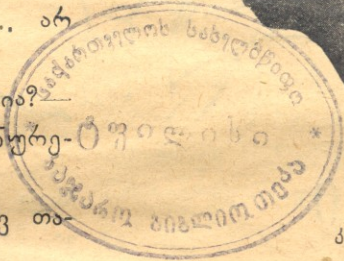 არ
საქართველოს სახელმწიფო
ტფილისი *
საჯარო ბიბლიოთეკა
თა-